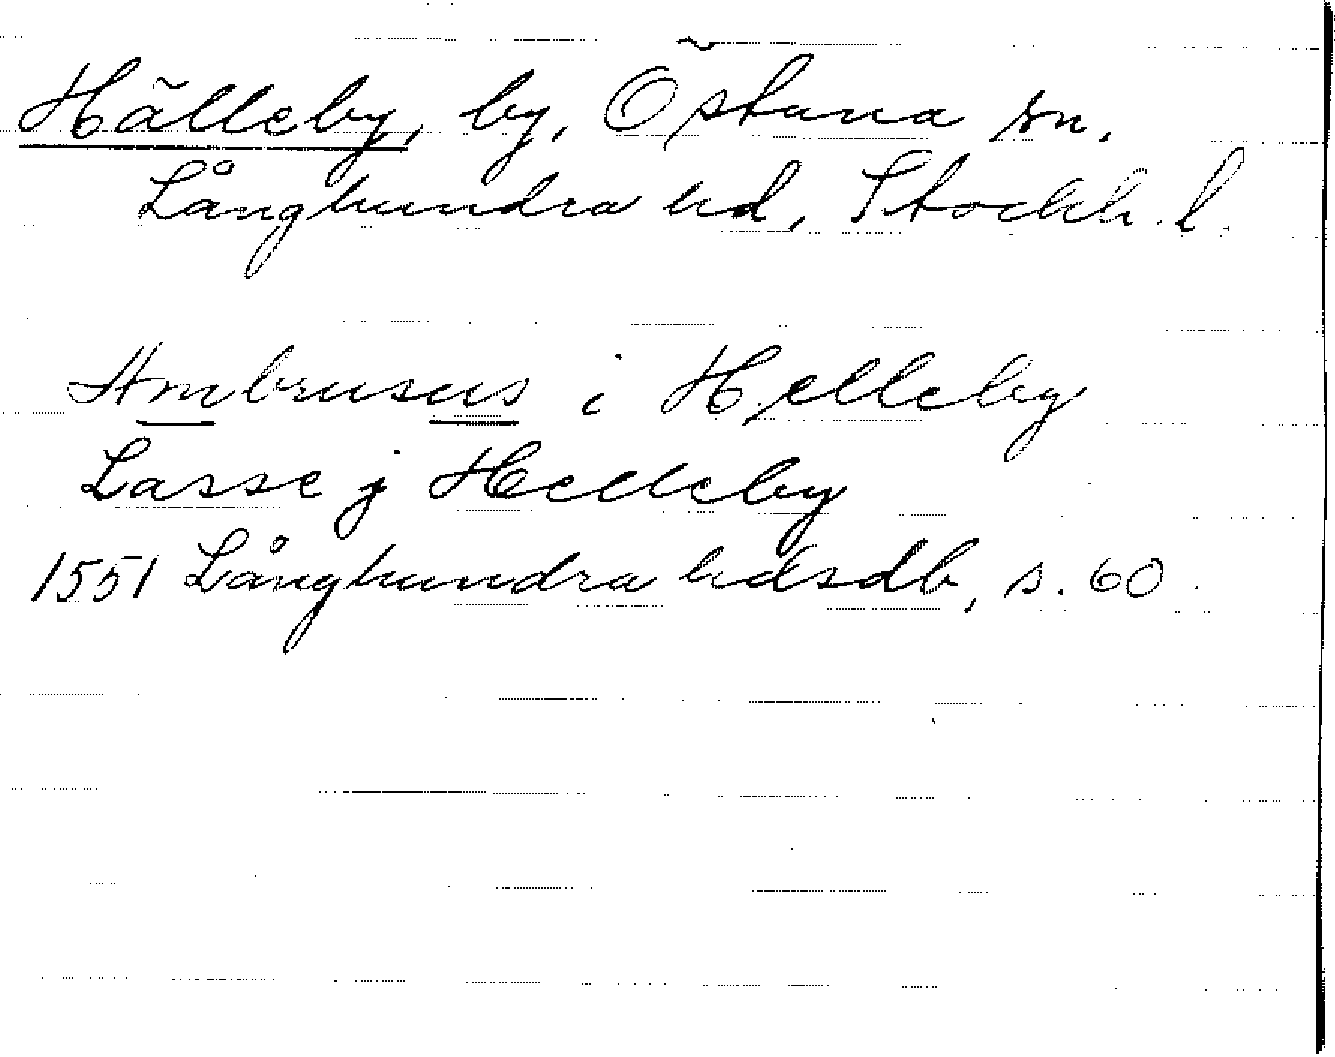 Hälleby, by, Östuna sn.
Långhundra hd, Stockh. l.
Ambrusus i Helleby
Lasse j Helleby
1551 Långhundra hdsdb, s. 60.